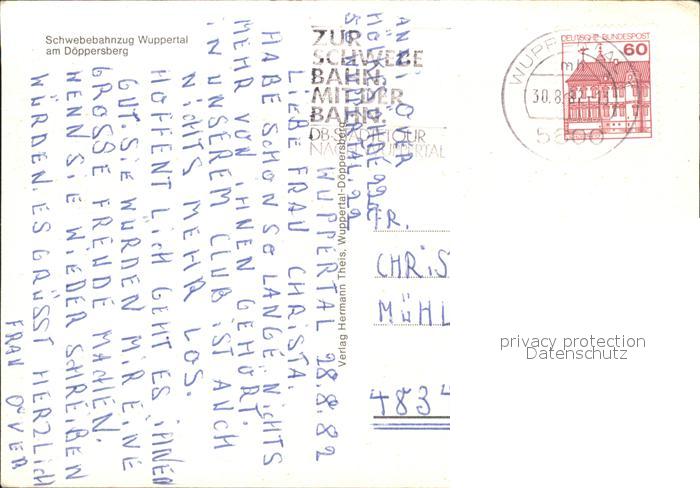 Schwebebahnzug Wuppertal
am Döppersberg
ZUR
SCHWEBE
BAHN.
MIT DER
BAHN.
DB STÄDTETOUR
NACH WUPPERTAL
DEUTSCHE BUNDESPOST
60
30.8.82
5600
Verlag Hermann Theis, Wuppertal-Döppersberg
ANNI OVER
5600 WUPPERTAL 22
WUPPERTAL 28.8.82
LIEBE FRAU CHRISTA.
HABE SCHON SO LANGE NICHTS
MEHR VON IHNEN GEHÖRT.
IN UNSEREM CLUB IST AUCH
NICHTS MEHR LOS.
HOFFENTLICH GEHT ES IHNEN
GUT. SIE WÜRDEN MIR EINE
GROSSE FREUDE MACHEN.
WENN SIE WIEDER SCHREIBEN
WÜRDEN. ES GRÜSST HERZLICH
FRAU OVER
FR.
CHRIS
MÜHL
4834
privacy protection
Datenschutz